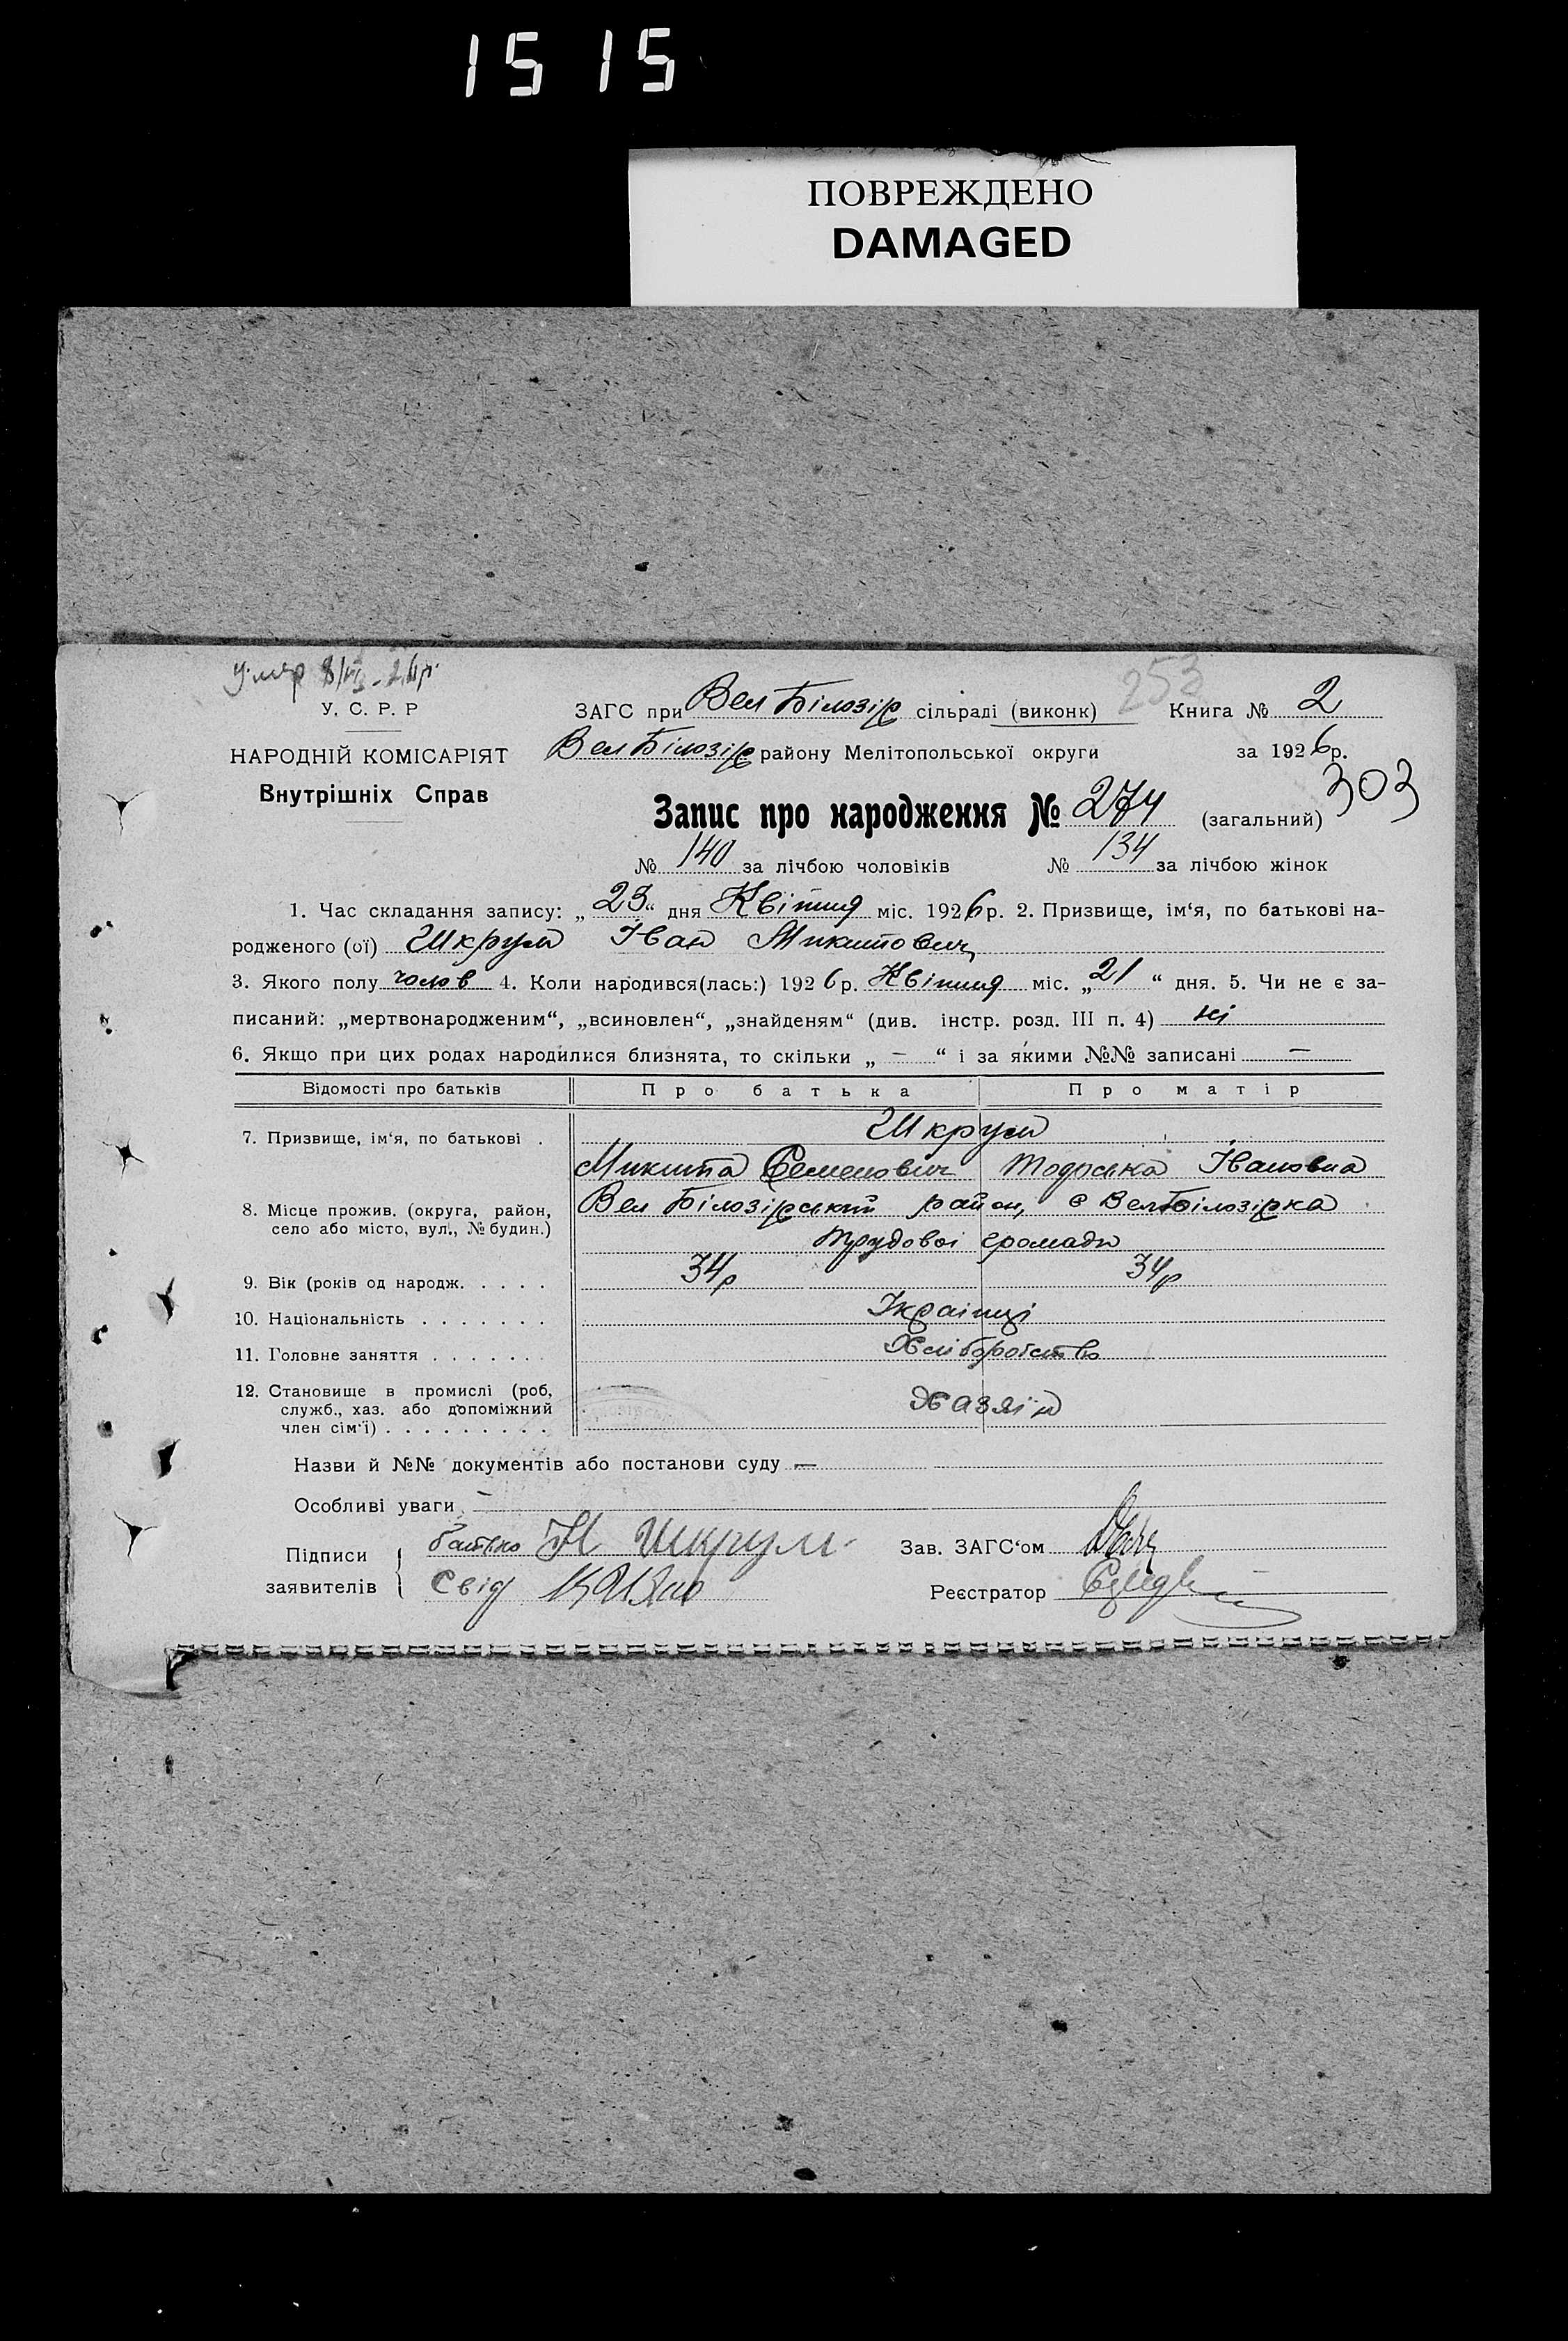 1515
ПОВРЕЖДЕНО
DAMAGED
умер
253
У. С. Р. Р
ЗАГС при Вел Білозір сільраді (виконк) Книга № 2
НАРОДНІЙ КОМІСАРІЯТ
Вел Білозір району Мелітопольської округи за 1926р.
Внутрішніх Справ
303
Запис про народження № 274 (загальний)
№ 140 за лічбою чоловіків № 134 за лічбою жінок
1. Час складання запису: „23“ дня Квітня міс. 1926р. 2. Призвище, ім‘я, по батькові на-
родженого (ої) Шкрум Іван Микитович
3. Якого полу чолов 4. Коли народився(лась:) 1926р. Квітня міс. „21“ дня. 5. Чи не є за-
писаний: „мертвонародженим“, „всиновлен“, „знайденям“ (див. інстр. розд. III п. 4) ні
6. Якщо при цих родах народилися близнята, то скільки „ — “ і за якими №№ записані —
Відомості про батьків Про батька Про матір
7. Призвище, ім‘я, по батькові . Шкрум
Микита Семенович Тодоська Івановна
8. Місце прожив. (округа, район, Вел Білозірський район, с Вел Білозірка
село або місто, вул., № будин.)
Трудової громади
9. Вік (років од народж. . . . . 34р 34р
10. Національність . . . . . . . Українці
11. Головне заняття . . . . . . . Хліборобство
12. Становище в промислі (роб, Хазяїн
служб., хаз. або допоміжний
член сім‘ї) . . . . . . . . .
Назви й №№ документів або постанови суду —
Особливі уваги —
Підписи батько Н Шкрум Зав. ЗАГС‘ом
заявителів Свід Реєстратор